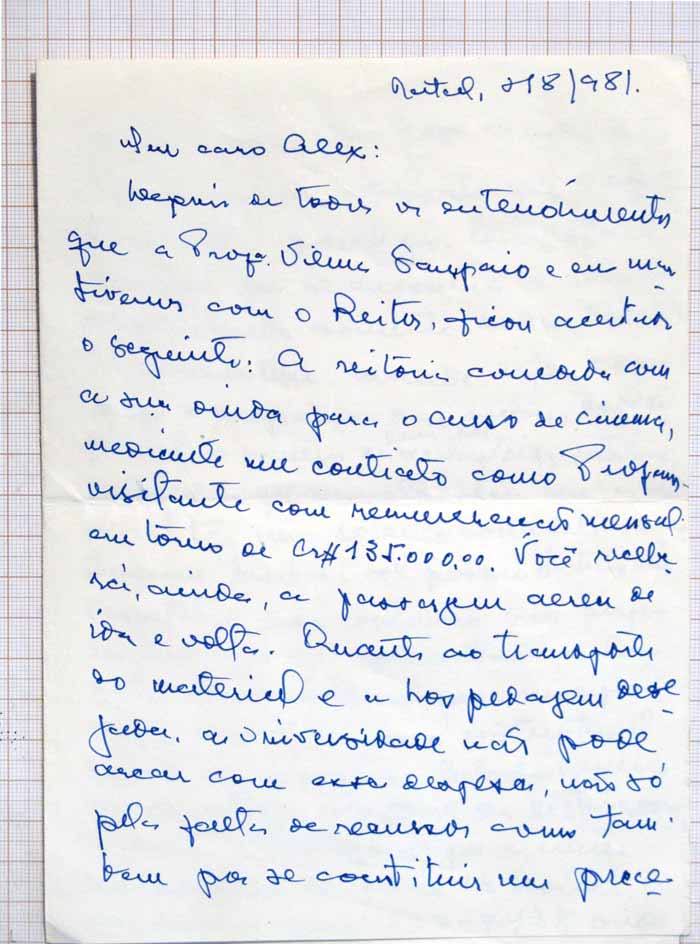 Natal, 218/981.
Meu caro Alex:
Depois de todos os entendimentos
que a Profa. Vilma Sampaio e eu man
tivemos com o Reitor, ficou acertado
o seguinte: A reitoria concorda com
a sua vinda para o curso de cinema,
mediante um contrato como Professor
visitante com remuneração mensal
em torno de Cr$135.000,00. Você recebe
rá, ainda, a passagem aerea de
ida e volta. Quanto ao transporte
do material e a hospedagem dese
jada, a Universidade não pode
arcar com essa despesa, não só
pela falta de recursos como tam
bem por se constituir um prece